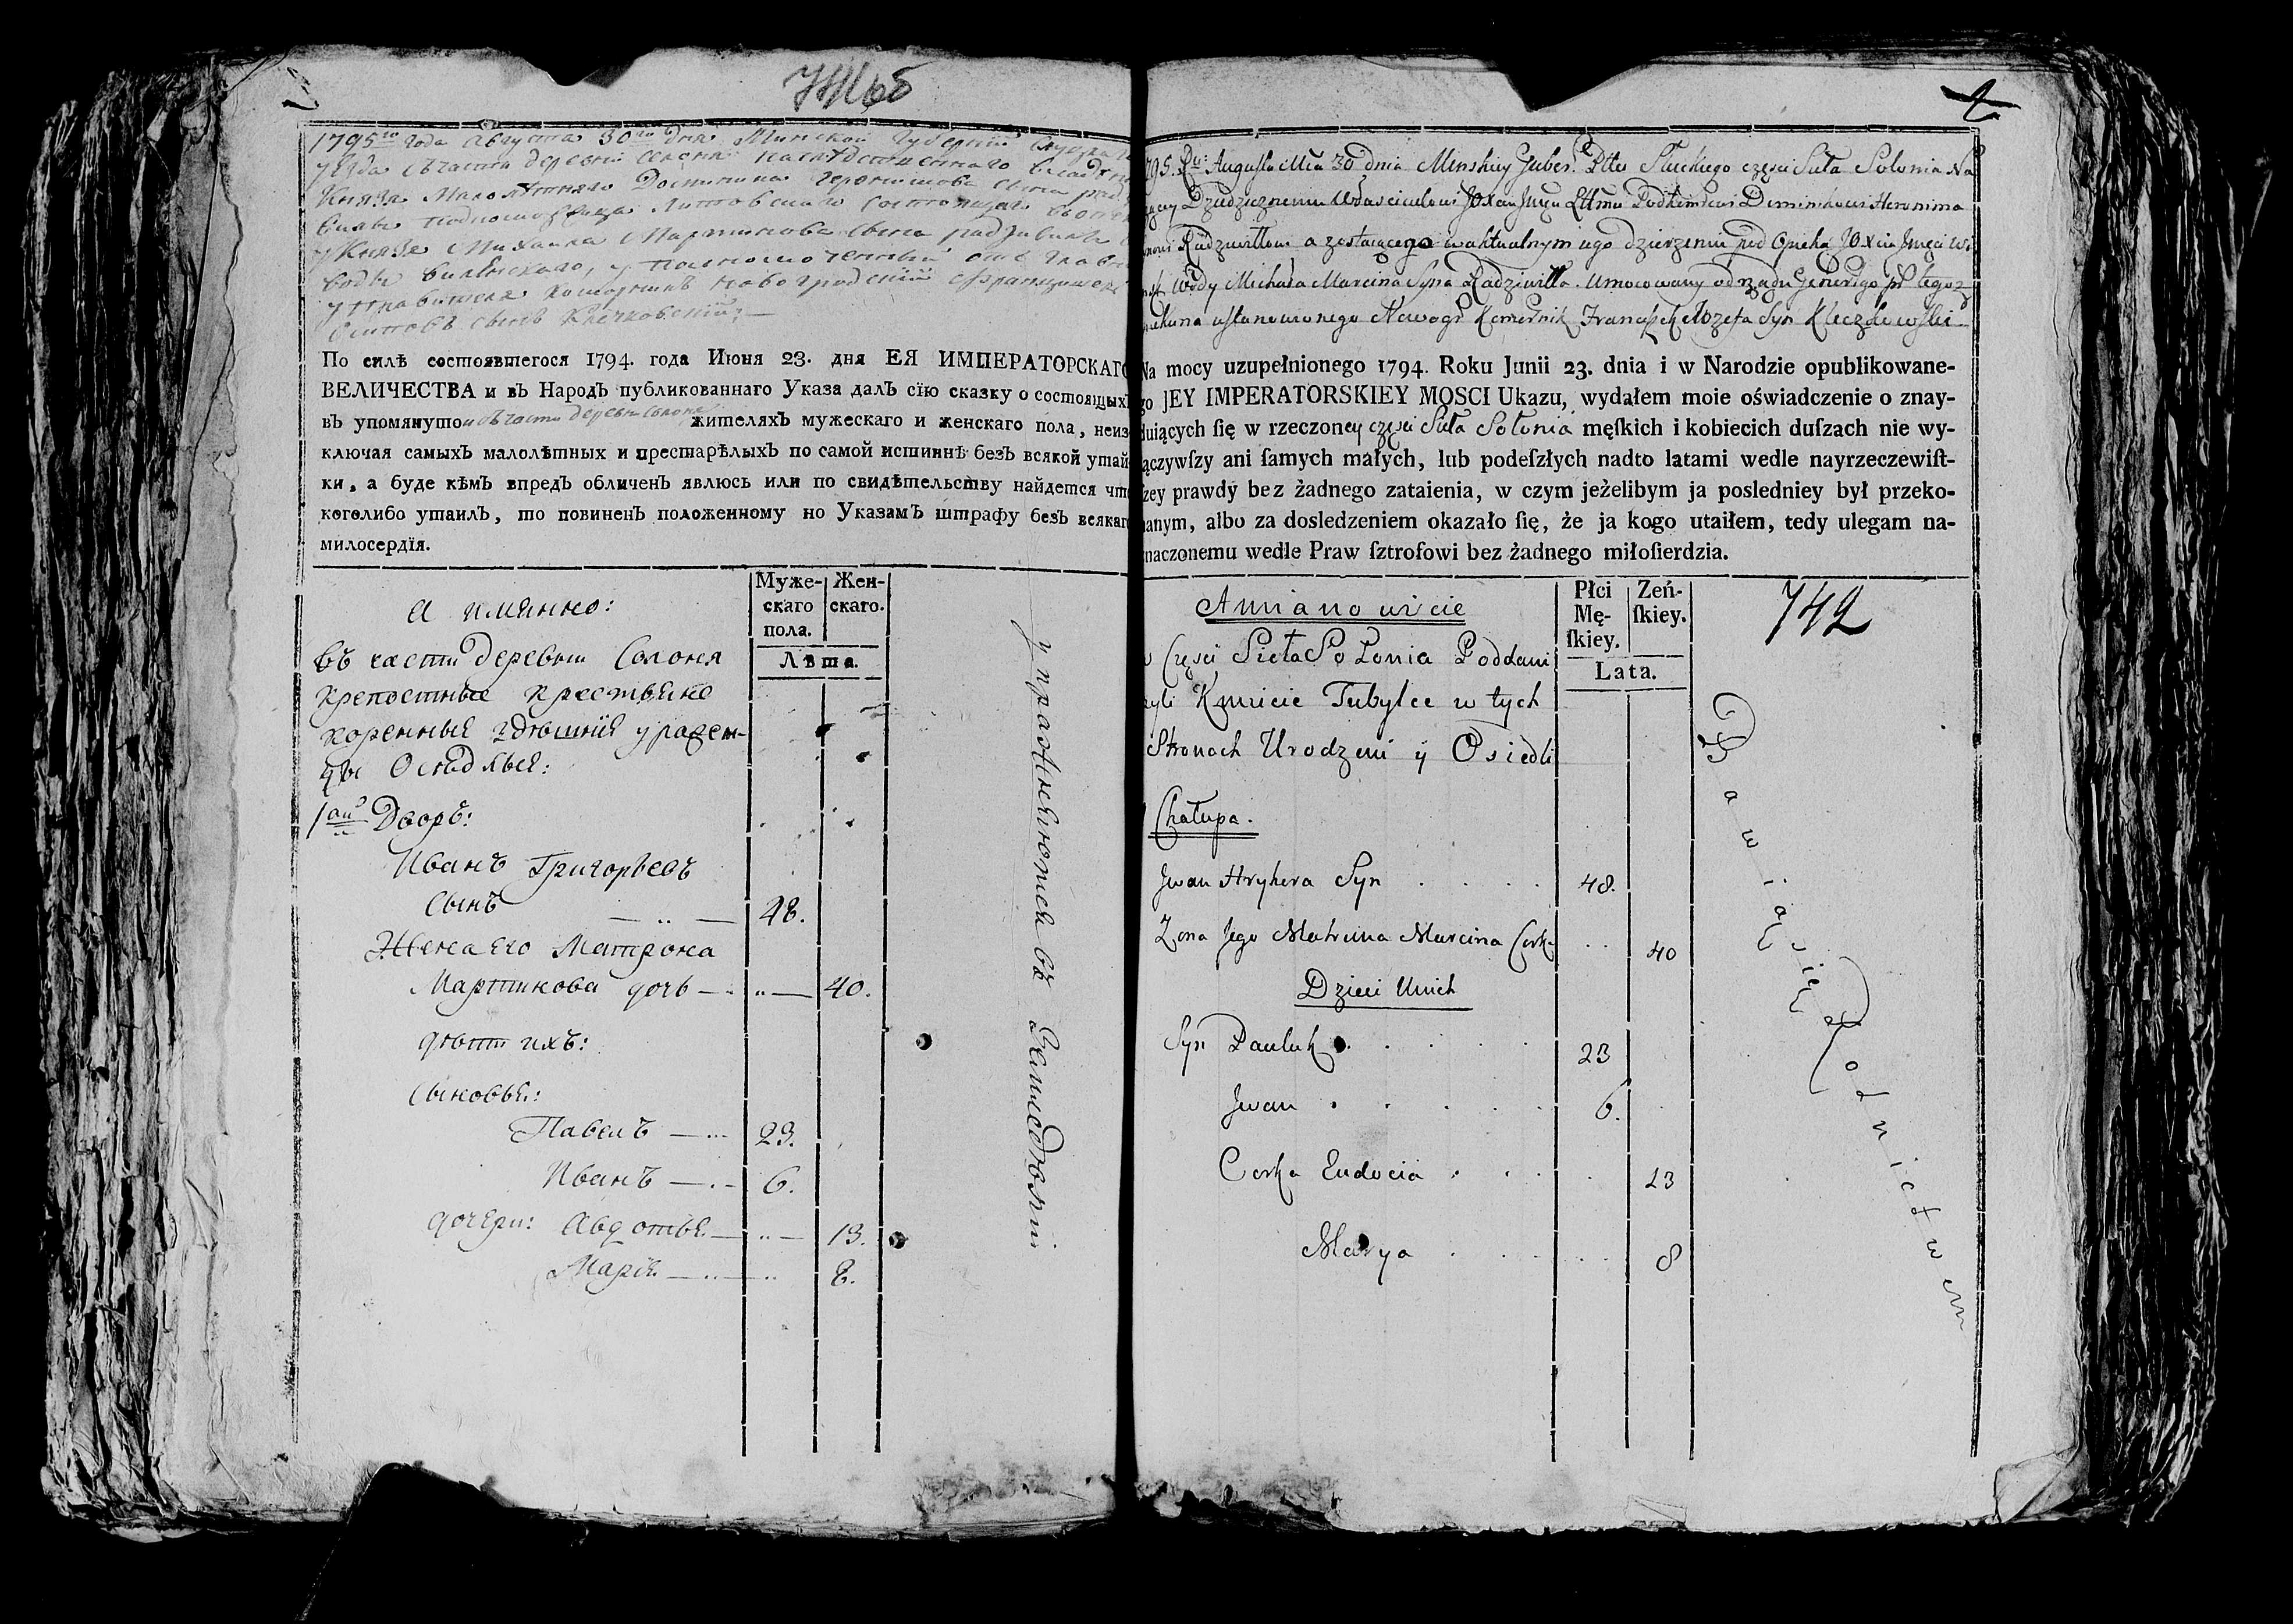 1795го года Августа 30го дня Минской Губернии
уезда въ части деревни Солоня наследственнаго
Князя Малолетняго Доминика Геронимова сына
Литовскаго состоящаго
у Князя Михаила Мартинова сына Радзивилъ
воды Виленскаго, уполномоченный отъ
управителя Новогродский Францишекъ
Осиповъ сынъ Клечковский
По силѣ состоявшегося 1794. года Июня 23. дня ЕЯ ИМПЕРАТОРСКАГО
ВЕЛИЧЕСТВА и въ Народъ публикованнаго Указа далъ сїю сказку о состоящыхъ
въ упомянутои въ части деревни Солоня жителяхъ мужескаго и женскаго пола, неиз-
ключая самыхъ малолѣтныхъ и престарѣлыхъ по самой истиннѣ безъ всякой утай-
ки, а буде кѣмъ впредъ обличенъ явлюсь или по свидѣтельству найдется что
коголибо утаилъ, то повиненъ положенному по Указамъ штрафу безъ всякаго
милосердїя.
Муже-
скаго
пола.
Жен-
скаго.
Лѣта.
А имянно:
въ части деревни Солоня
крепостные крестьяне
коренныя здешнія уражен-
цы
1ай Дворъ:
Иванъ Григорьевъ
сынъ 48.
Жена его Матрона
Мартинова дочь 40.
дѣти ихъ:
сыновья:
Павелъ 23.
Иванъ 6.
дочери: Авдотья 13.
Марія 8.
упражняются въ Земледѣліи
795. Ru: Augusta Mca 30 dnia Minskiey Guber: Pttu Słuckiego części Sieła Sołonia Na
Dziedzicznemu Właścicielowi JOXciu Jmęci Dominikowi Heronima
Radziwiłłowi a zostaiącego w aktualnym iego dzierzeniu pod Opieką JOXcia Jmęci
Wdy Michała Marcina Syna Radziwiłła. Umocowany od rządu tegoż
ustanowionego Nowogr Komornik Franciszek Józefa Syn Kleczkowski
Na mocy uzupełnionego 1794. Roku Junii 23. dnia i w Narodzie opublikowane-
go JEY IMPERATORSKIEY MOSCI Ukazu, wydałem moie oświadczenie o znay-
duiących ſię w rzeczoney części Sieła Sołonia męſkich i kobiecich duſzach nie wy-
ączywſzy ani ſamych małych, lub podeſzłych nadto latami wedle nayrzeczewiſt-
zey prawdy bez żadnego zataienia, w czym jeżelibym ja posledniey był przeko-
nanym, albo za dosledzeniem okazało ſię, że ja kogo utaiłem, tedy ulegam na-
naczonemu wedle Praw ſztrofowi bez żadnego miłoſierdzia.
Płci
Mę-
ſkiey.
Zeń-
ſkiey.
Lata.
742
Amianowicie
w Części Sieła Sołonia Poddani
czyli Kmiecie Tubylce w tych
Stronach Urodzeni y Osiedli
Chałupa.
Jwan Hryhera Syn 48.
Zona Jego Matruna Marcina Corka 40
Dzieci Unich
Syn Pauluk 23
Jwan 6.
Corka Eudocia 13
Marya 8
Bawią się Rolnictwem